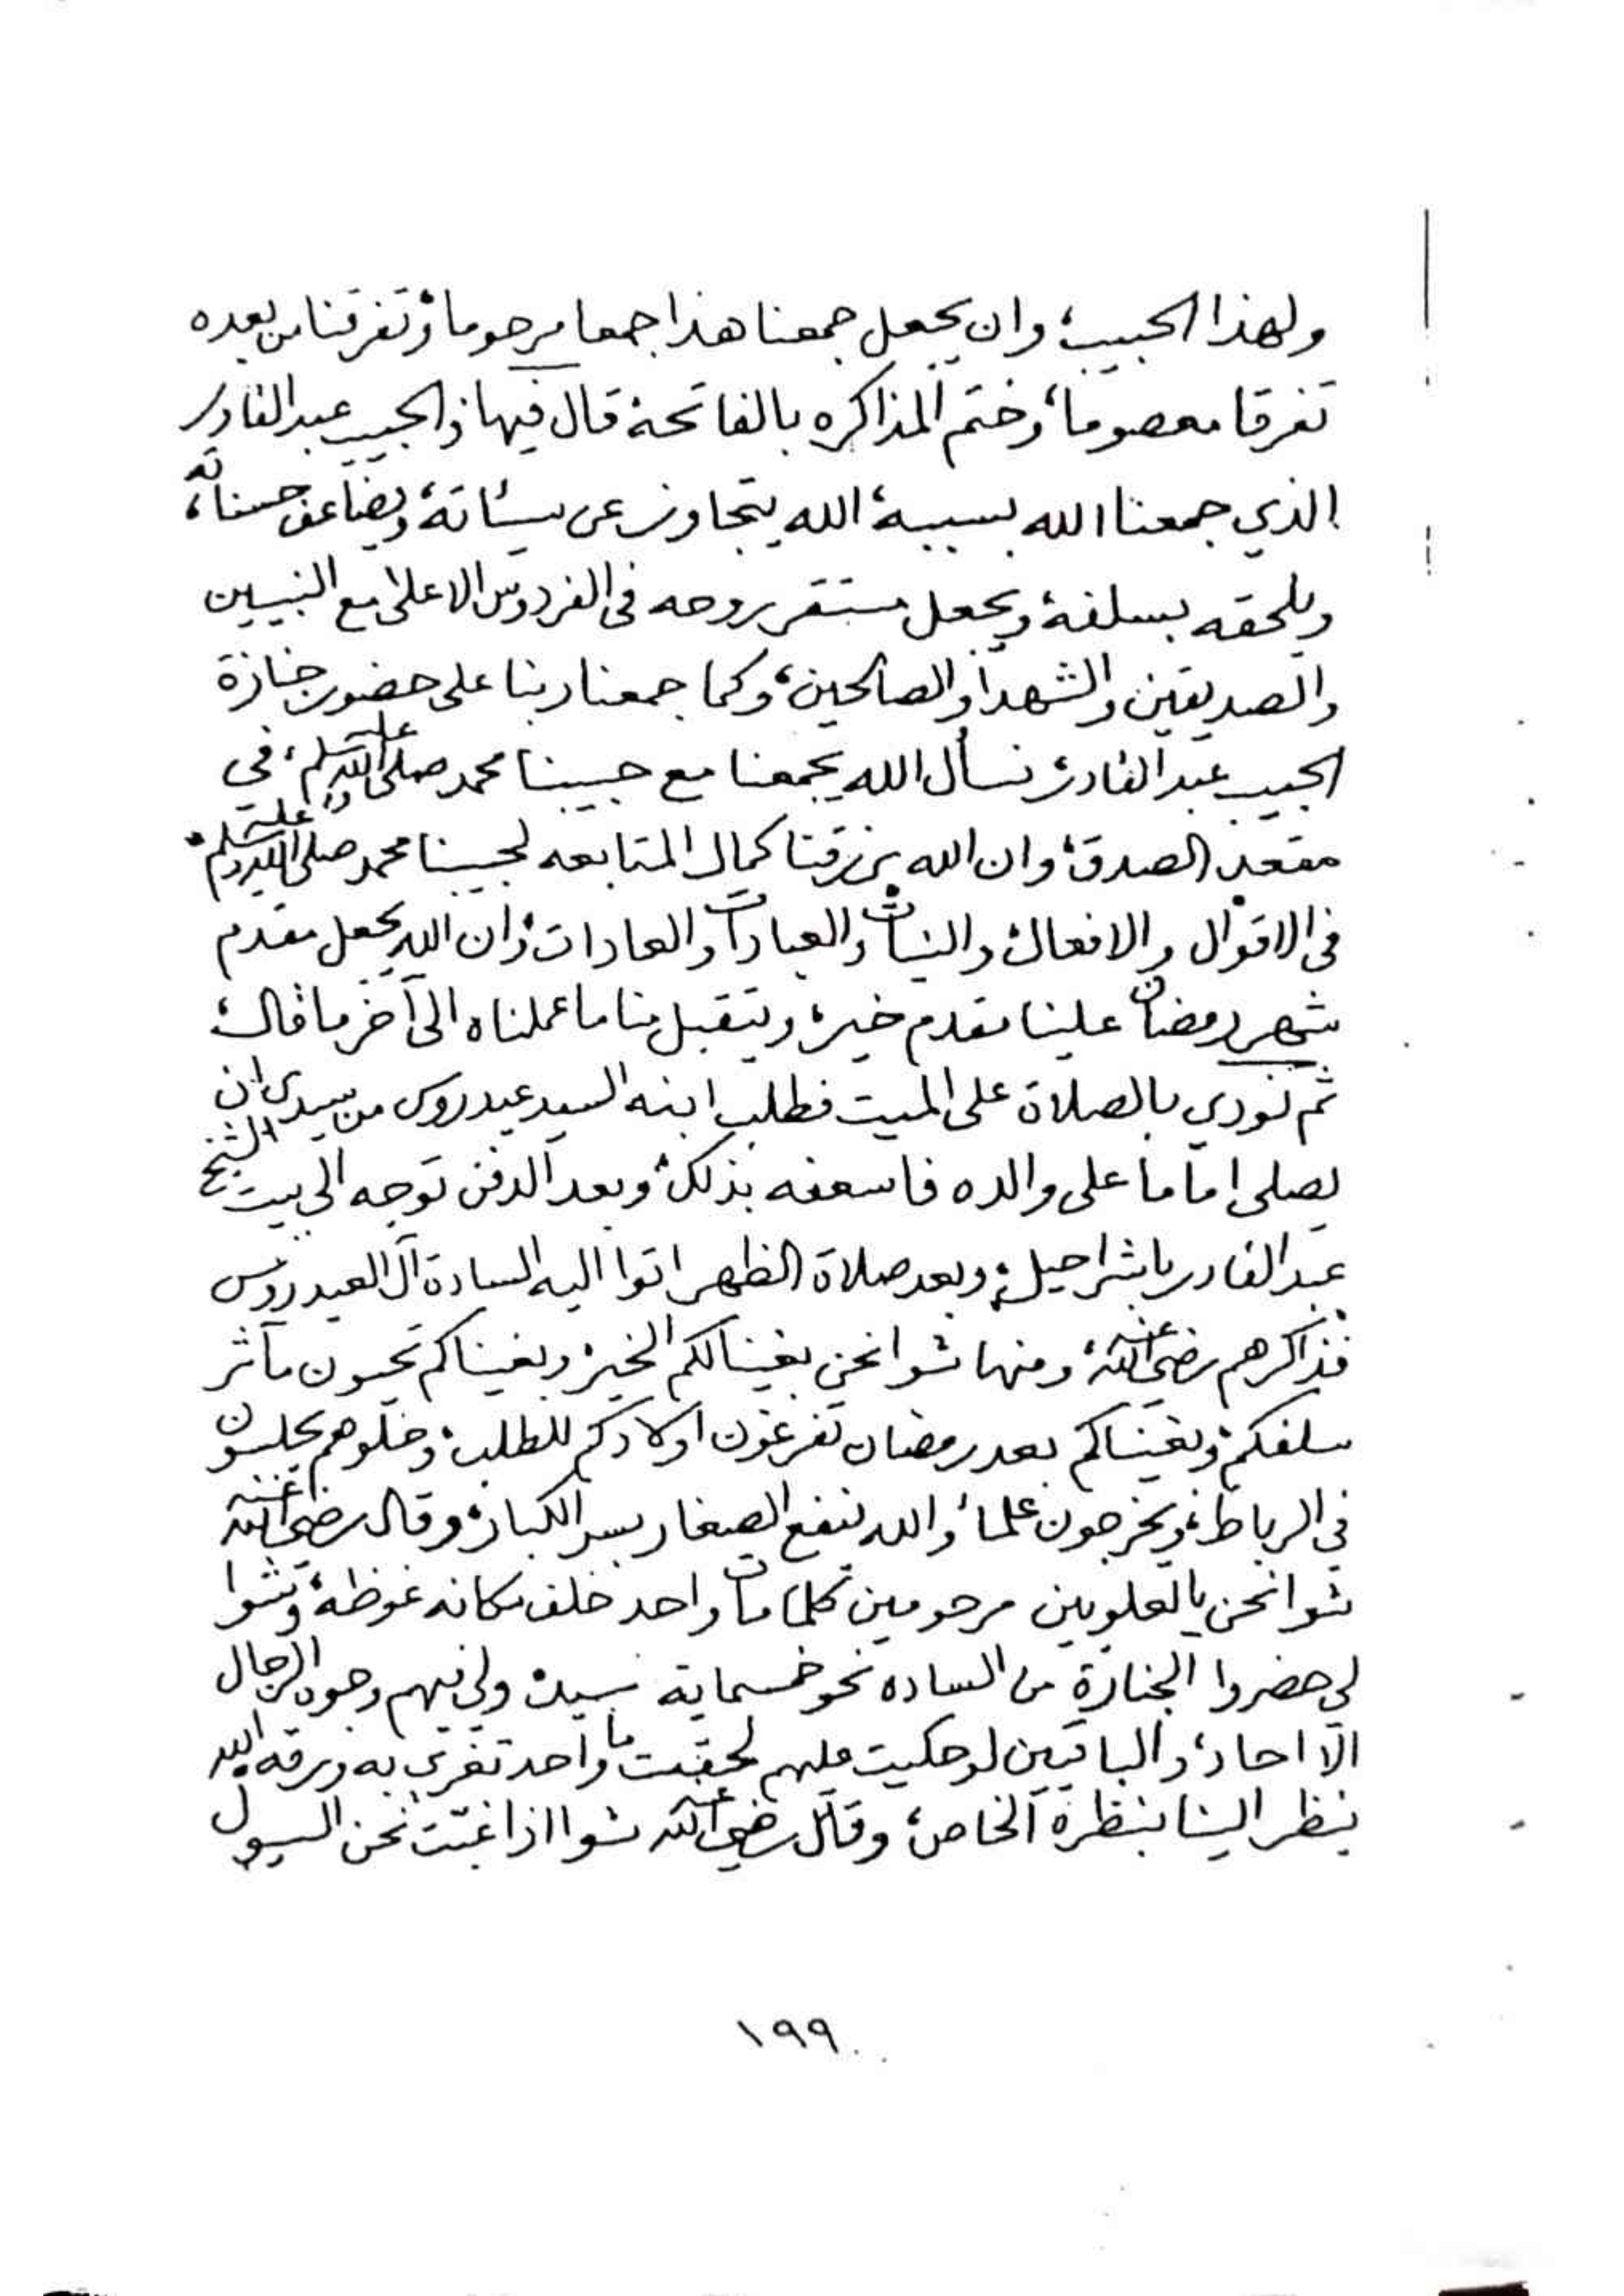 ولهذا الحبيب، وان يجعل جمعنا هذا جمعا مرحوما، وتفرقنا من بعده
تفرقا معصوما، وختم المذاكره بالفاتحة قال فيها ذا الحبيب عبدالقادر
الذي جمعنا الله بسببه، الله يتجاوز عن سيئاته، ويضاعف حسناته،
ويلحقه بسلفه، ويجعل مستقر روحه في الفردوس الاعلى مع النبيين
والصديقين والشهدا والصالحين، وكما جمعنا ربنا على حضور جنازة
الحبيب عبدالقادر، نسأل الله يجمعنا مع حبيبنا محمد صلى الله عليه وسلم، في
مقعد الصدق، وان الله يرزقنا كمال المتابعه لحبيبنا محمد صلى الله عليه وسلم،
في الاقوال والافعال، والنيات والعبادات والعادات، وان الله يجعل مقدم
شهر رمضان علينا مقدم خير، ويتقبل منا ما عملناه الى آخر ما قال،
ثم نودي بالصلاة على الميت فطلب ابنه السيد عيدروس من سيدي ان
يصلي اماما على والده فاسعفه بذلك، وبعد الدفن توجه الى بيت الشيخ
عبدالقادر باشراحيل، وبعد صلاة الظهر اتوا اليه السادة آل العيدروس
فذاكرهم رضي الله عنه، ومنها شوا نحن بغينا لكم الخير، وبغيناكم تحيون مآثر
سلفكم، وبغيناكم بعد رمضان تفرغون اولادكم للطلب، وخلوهم يجلسون
في الرباط، ويخرجون علما، والله ينفع الصغار بسر الكبار، وقال رضي الله عنه
شوا نحن يالعلويين مرحومين كلما مات واحد خلف مكانه غوظه، وشوا
لي حضروا الجنازة من السادة نحو خمسماية سيد، ولي فيهم وجوه الرجال
الا احاد، والباقين لو حكيت عليهم لحقت ما واحد تغري به ورقه، الله
ينظر الينا بنظرة الخاص، وقال رضي الله عنه شوا اذا غبّت نحن السيول
١٩٩